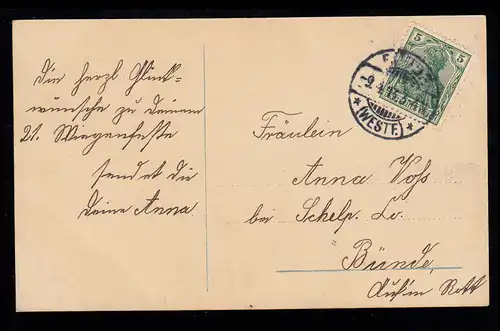 Die herzl Glück-
wünsche zu Deinem
21. Wiegenfeste
sendet dir
deine Anna.
5 5
*(WESTF.)*
Fräulein
Anna Voß
bei Schelp. Lo.
Bünde,
Auf'm Rott